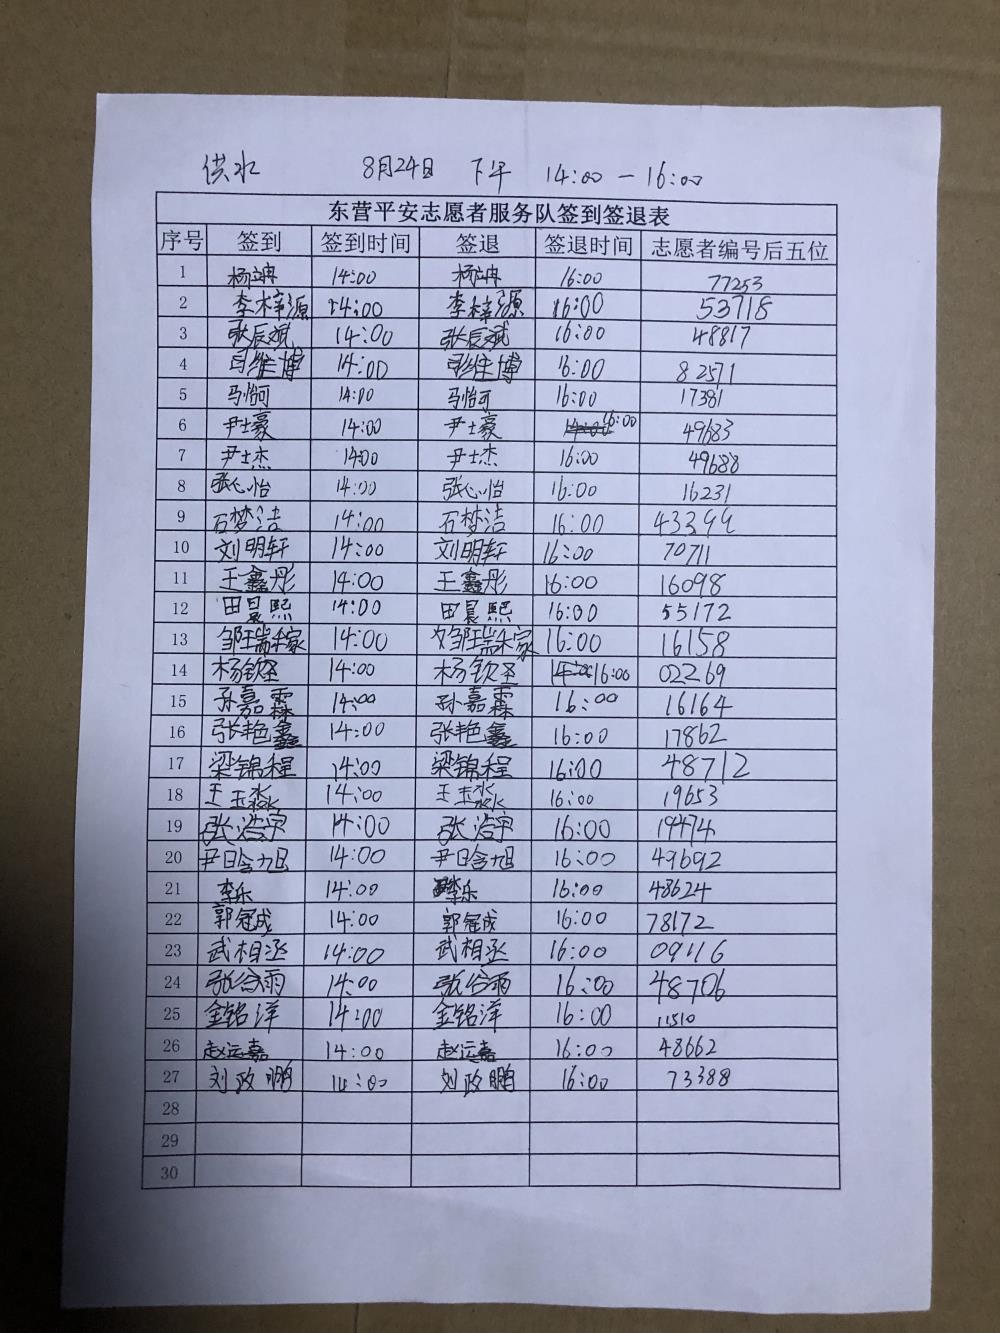 供水 8月24日 下午 14:00 — 16:00
东营平安志愿者服务队签到签退表
序号 签到 签到时间 签退 签退时间 志愿者编号后五位
1 14:00 16:00 77253
2 李梓源 14:00 李梓源 16:00 53718
3 张辰斌 14:00 张辰斌 16:00 48817
4 14:00 16:00 82571
5 马怡可 14:00 马怡可 16:00 17381
6 尹士豪 14:00 尹士豪 16:00 49683
7 尹士杰 14:00 尹士杰 16:00 49688
8 张心怡 14:00 张心怡 16:00 16231
9 石梦洁 14:00 石梦洁 16:00 43399
10 刘明轩 14:00 刘明轩 16:00 70711
11 王鑫彤 14:00 王鑫彤 16:00 16098
12 田晨熙 14:00 田晨熙 16:00 55172
13 邹瑞稼 14:00 邹瑞稼 16:00 16158
14 杨钦圣 14:00 杨钦圣 16:00 02269
15 孙嘉霖 14:00 孙嘉霖 16:00 16164
16 张艳鑫 14:00 张艳鑫 16:00 17862
17 梁锦程 14:00 梁锦程 16:00 48712
18 王玉淼 14:00 王玉淼 16:00 19653
19 张浩宇 14:00 张浩宇 16:00 19474
20 尹晗旭 14:00 尹晗旭 16:00 49692
21 李乐 14:00 李乐 16:00 48624
22 郭冠成 14:00 郭冠成 16:00 78172
23 武相丞 14:00 武相丞 16:00 09116
24 张谷雨 14:00 张谷雨 16:00 48706
25 金铭洋 14:00 金铭洋 16:00 11510
26 赵运嘉 14:00 赵运嘉 16:00 48662
27 刘政鹏 14:00 刘政鹏 16:00 73388
28
29
30